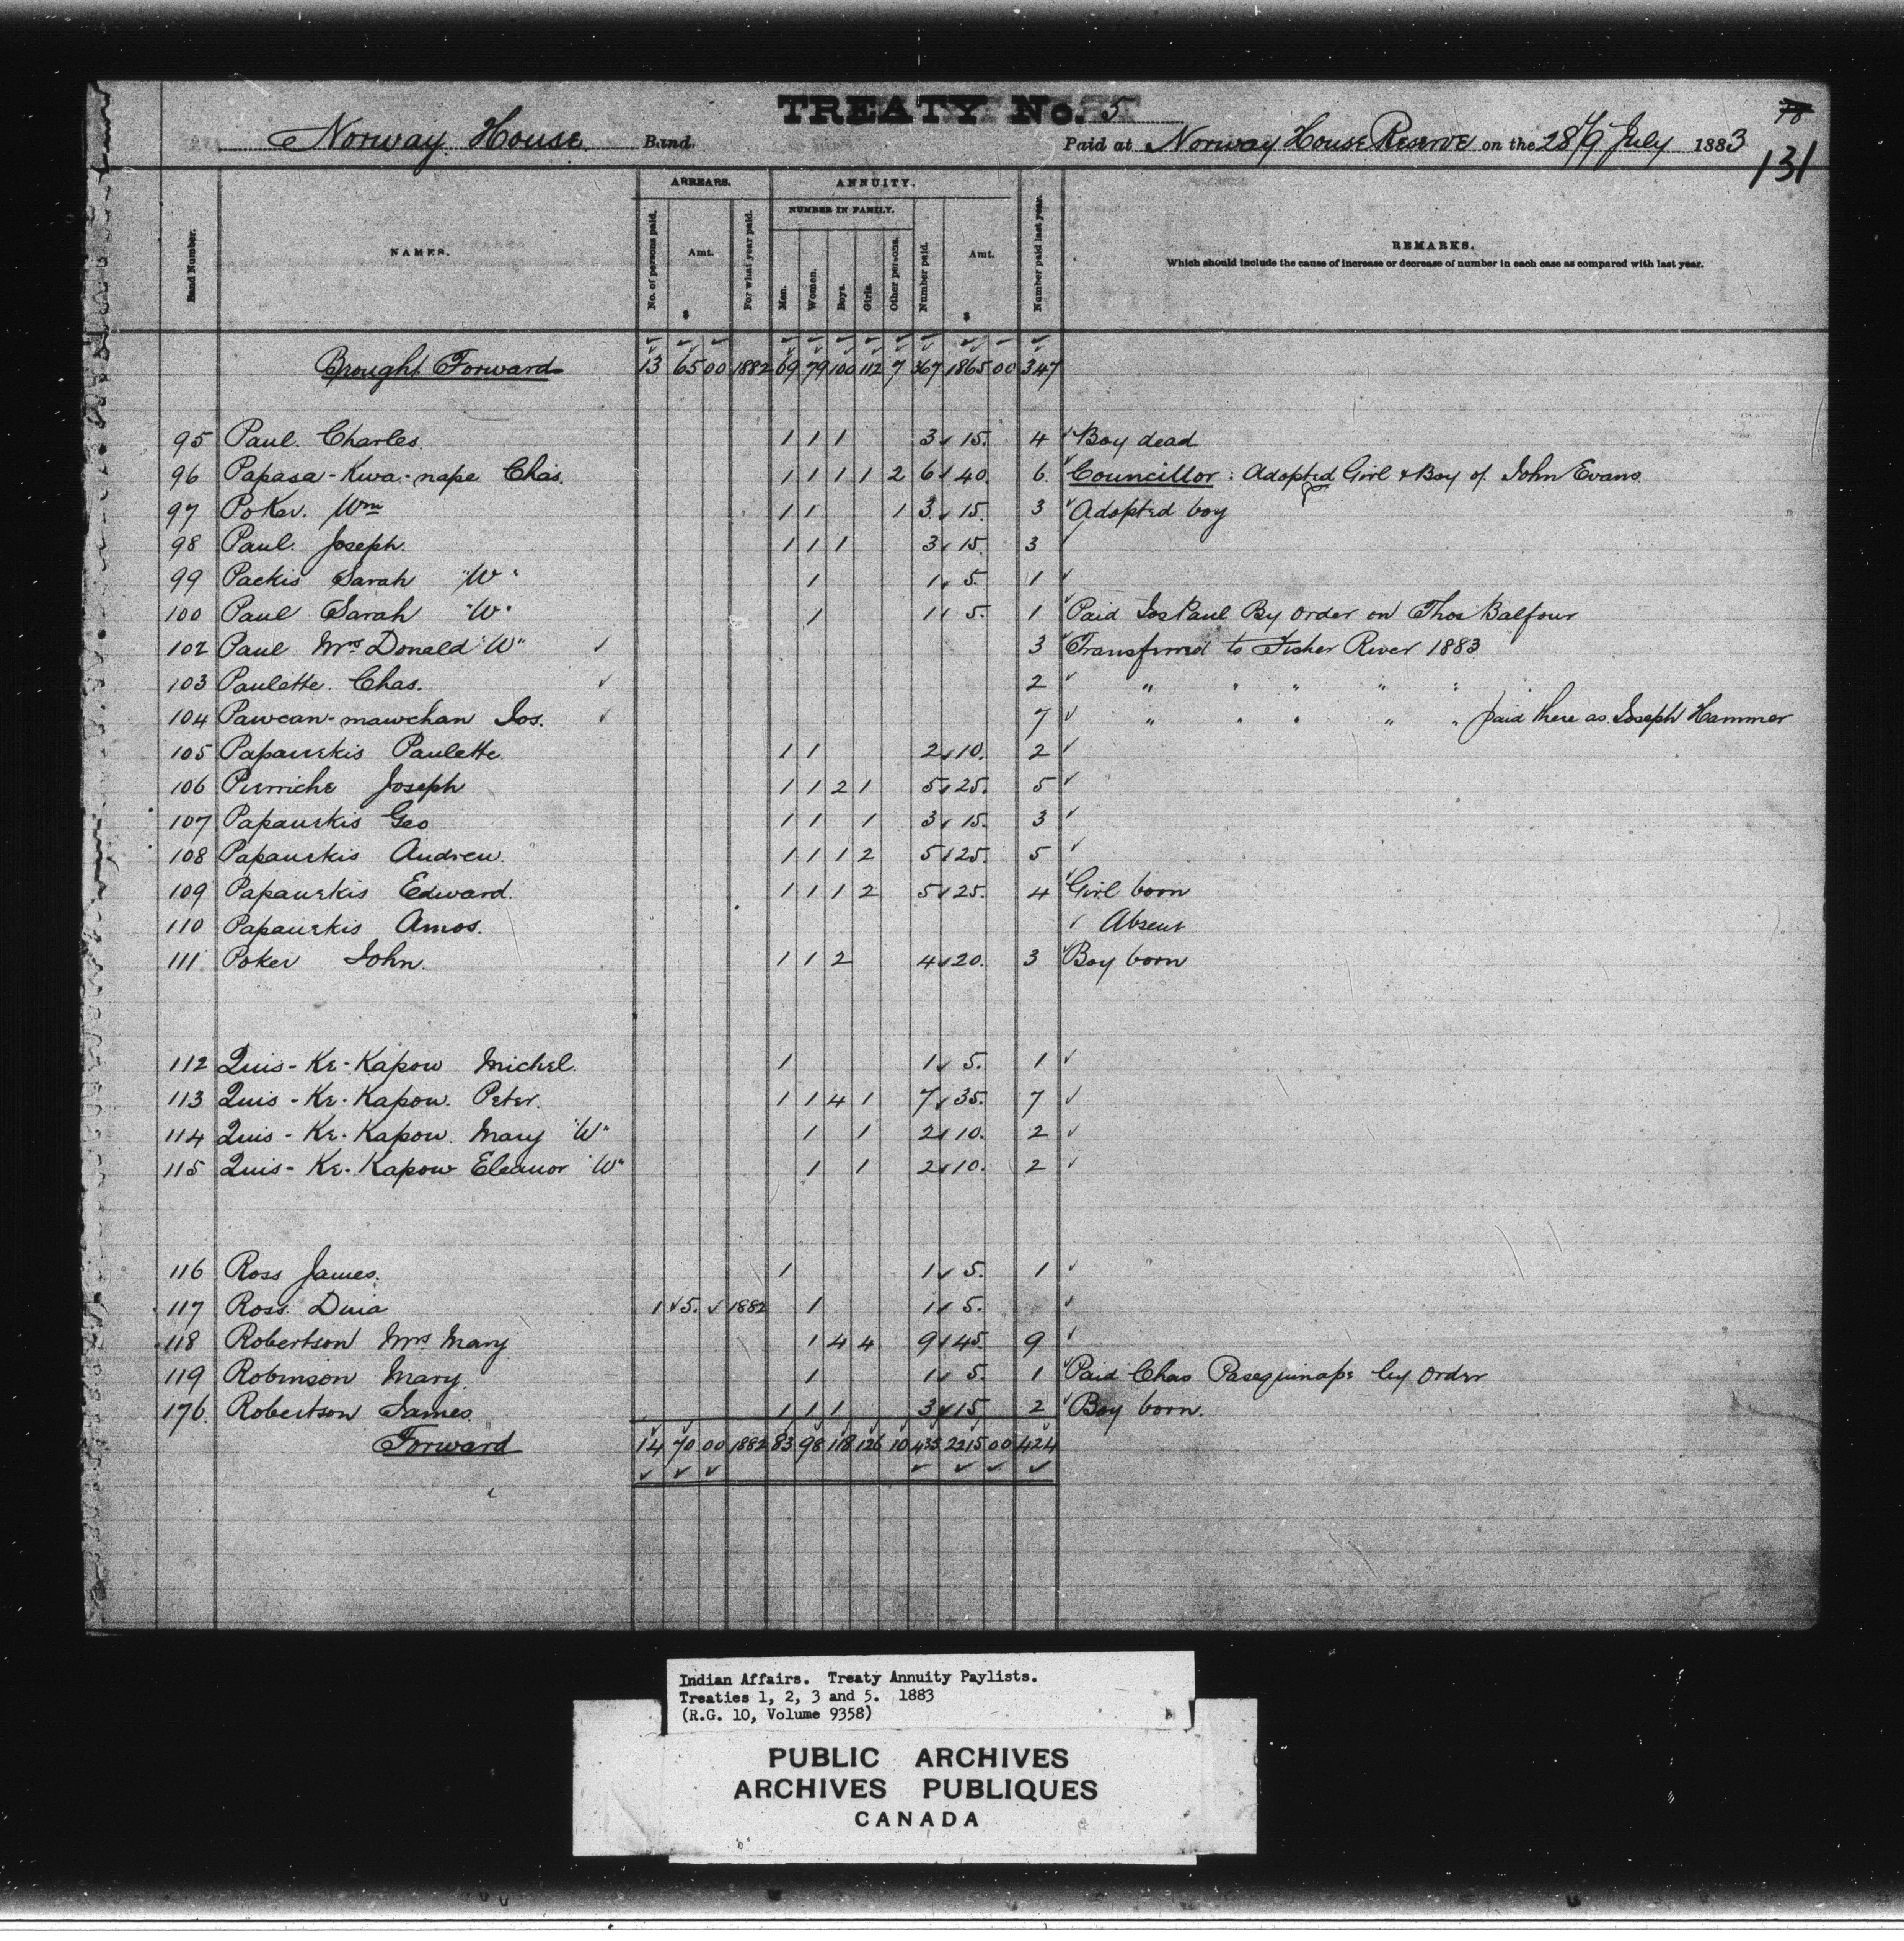 TREATY No. 5
78
Norway House Band. Paid at Norway House Reserve on the 28/9 July 1883
131
ARREARS. ANNUITY.
NUMBER IN FAMILY.
Band Number. NAMES. No. of persons paid. Amt. $ For what year paid. Men. Women. Boys. Girls. Other persons. Number paid. Amt. $ Number paid last year. REMARKS.
Which should include the cause of increase or decrease of number in each case as compared with last year.
Brought Forward 13 65 00 1882 69 79 100 112 7 367 1865 00 347
95 Paul. Charles. 1 1 1 3 15. 4 Boy dead
96 Papasa-Kwa-nape Chas. 1 1 1 1 2 6 40. 6. Councillor: Adopted Girl & Boy of John Evans
97 Poker. Wm 1 1 1 3 15. 3 Adopted boy
98 Paul. Joseph. 1 1 1 3 15. 3
99 Packis Sarah "W" 1 1 5. 1
100 Paul Sarah "W" 1 1 5. 1 Paid Jos Paul By order on Thos Balfour
102 Paul Mrs Donald "W" 3 Transferred to Fisher River 1883
103 Paulette. Chas. 2 " " " " "
104 Pawcan-mawchan Jos. 7 " " " " " paid there as Joseph Hammer
105 Papanekis Paulette 1 1 2 10. 2
106 Pierriche Joseph 1 1 2 1 5 25. 5
107 Papanekis Geo 1 1 1 3 15. 3
108 Papanekis Andrew. 1 1 1 2 5 25. 5
109 Papanekis Edward. 1 1 1 2 5 25. 4 Girl born
110 Papanekis Amos. Absent
111 Poker John. 1 1 2 4 20. 3 Boy born
112 Quis-Ke-Kapow Michel. 1 1 5. 1
113 Quis-Ke-Kapow. Peter. 1 1 4 1 7 35. 7
114 Quis-Ke-Kapow. Mary "W" 1 1 2 10. 2
115 Quis-Ke-Kapow Eleanor "W" 1 1 2 10. 2
116 Ross James. 1 1 5. 1
117 Ross Dina 1 5. 1882 1 1 5.
118 Robertson Mrs Mary 1 4 4 9 45. 9
119 Robinson Mary. 1 1 5. 1 Paid Chas Pasequinape by order
176. Robertson James 1 1 1 3 15 2 Boy born.
Forward 14 70 00 1882 83 98 118 126 10 435 2215 00 424
Indian Affairs. Treaty Annuity Paylists.
Treaties 1, 2, 3 and 5. 1883
(R.G. 10, Volume 9358)
PUBLIC ARCHIVES
ARCHIVES PUBLIQUES
CANADA